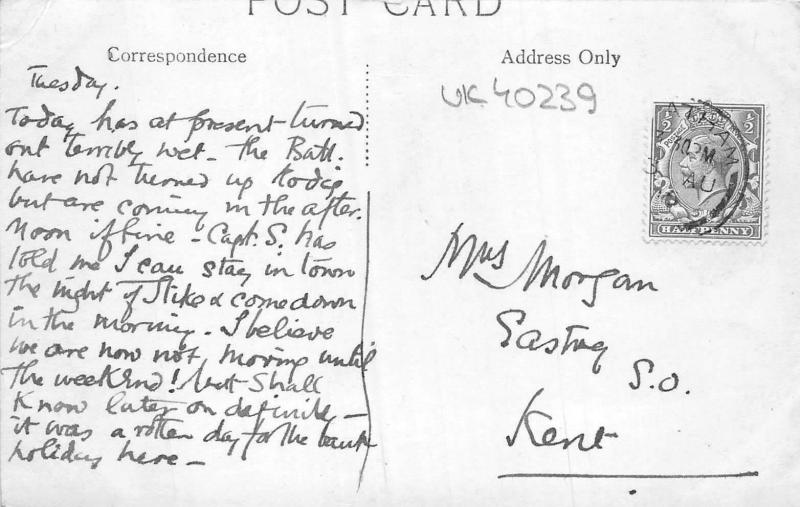 POST CARD
Correspondence
Address Only
UK 40239
Tuesday.
Today has at present turned
out terribly wet - the Batt.
have not turned up today
but are coming in the after.
noon if fine - Capt. S. has
told me I can stay in town
the night if I like & come down
in the morning. I believe
we are now not moving until
the weekend! but shall
know later on definitely -
it was a rotten day for the bank
holiday here -
Mrs Morgan
Eastry
S.O.
Kent
POSTAGE
HALFPENNY
PM
AU